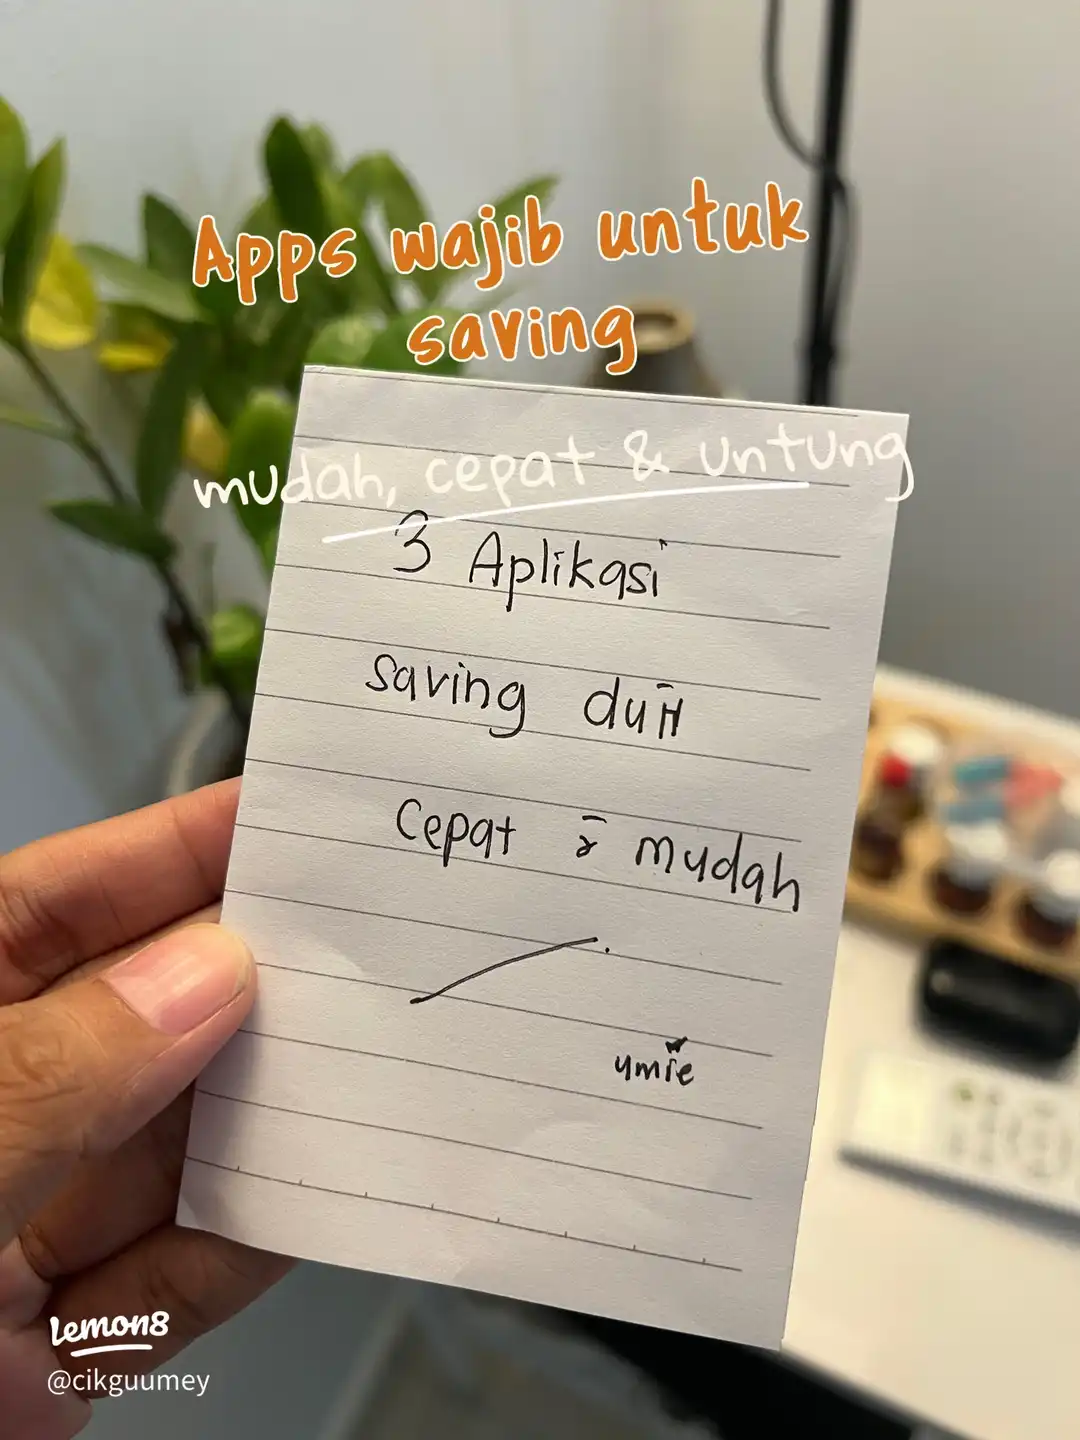 Apps wajib untuk
saving
mudah, cepat & untung
3 Aplikasi
saving duit
Cepat & mudah
umie
Lemon8
@cikguumey